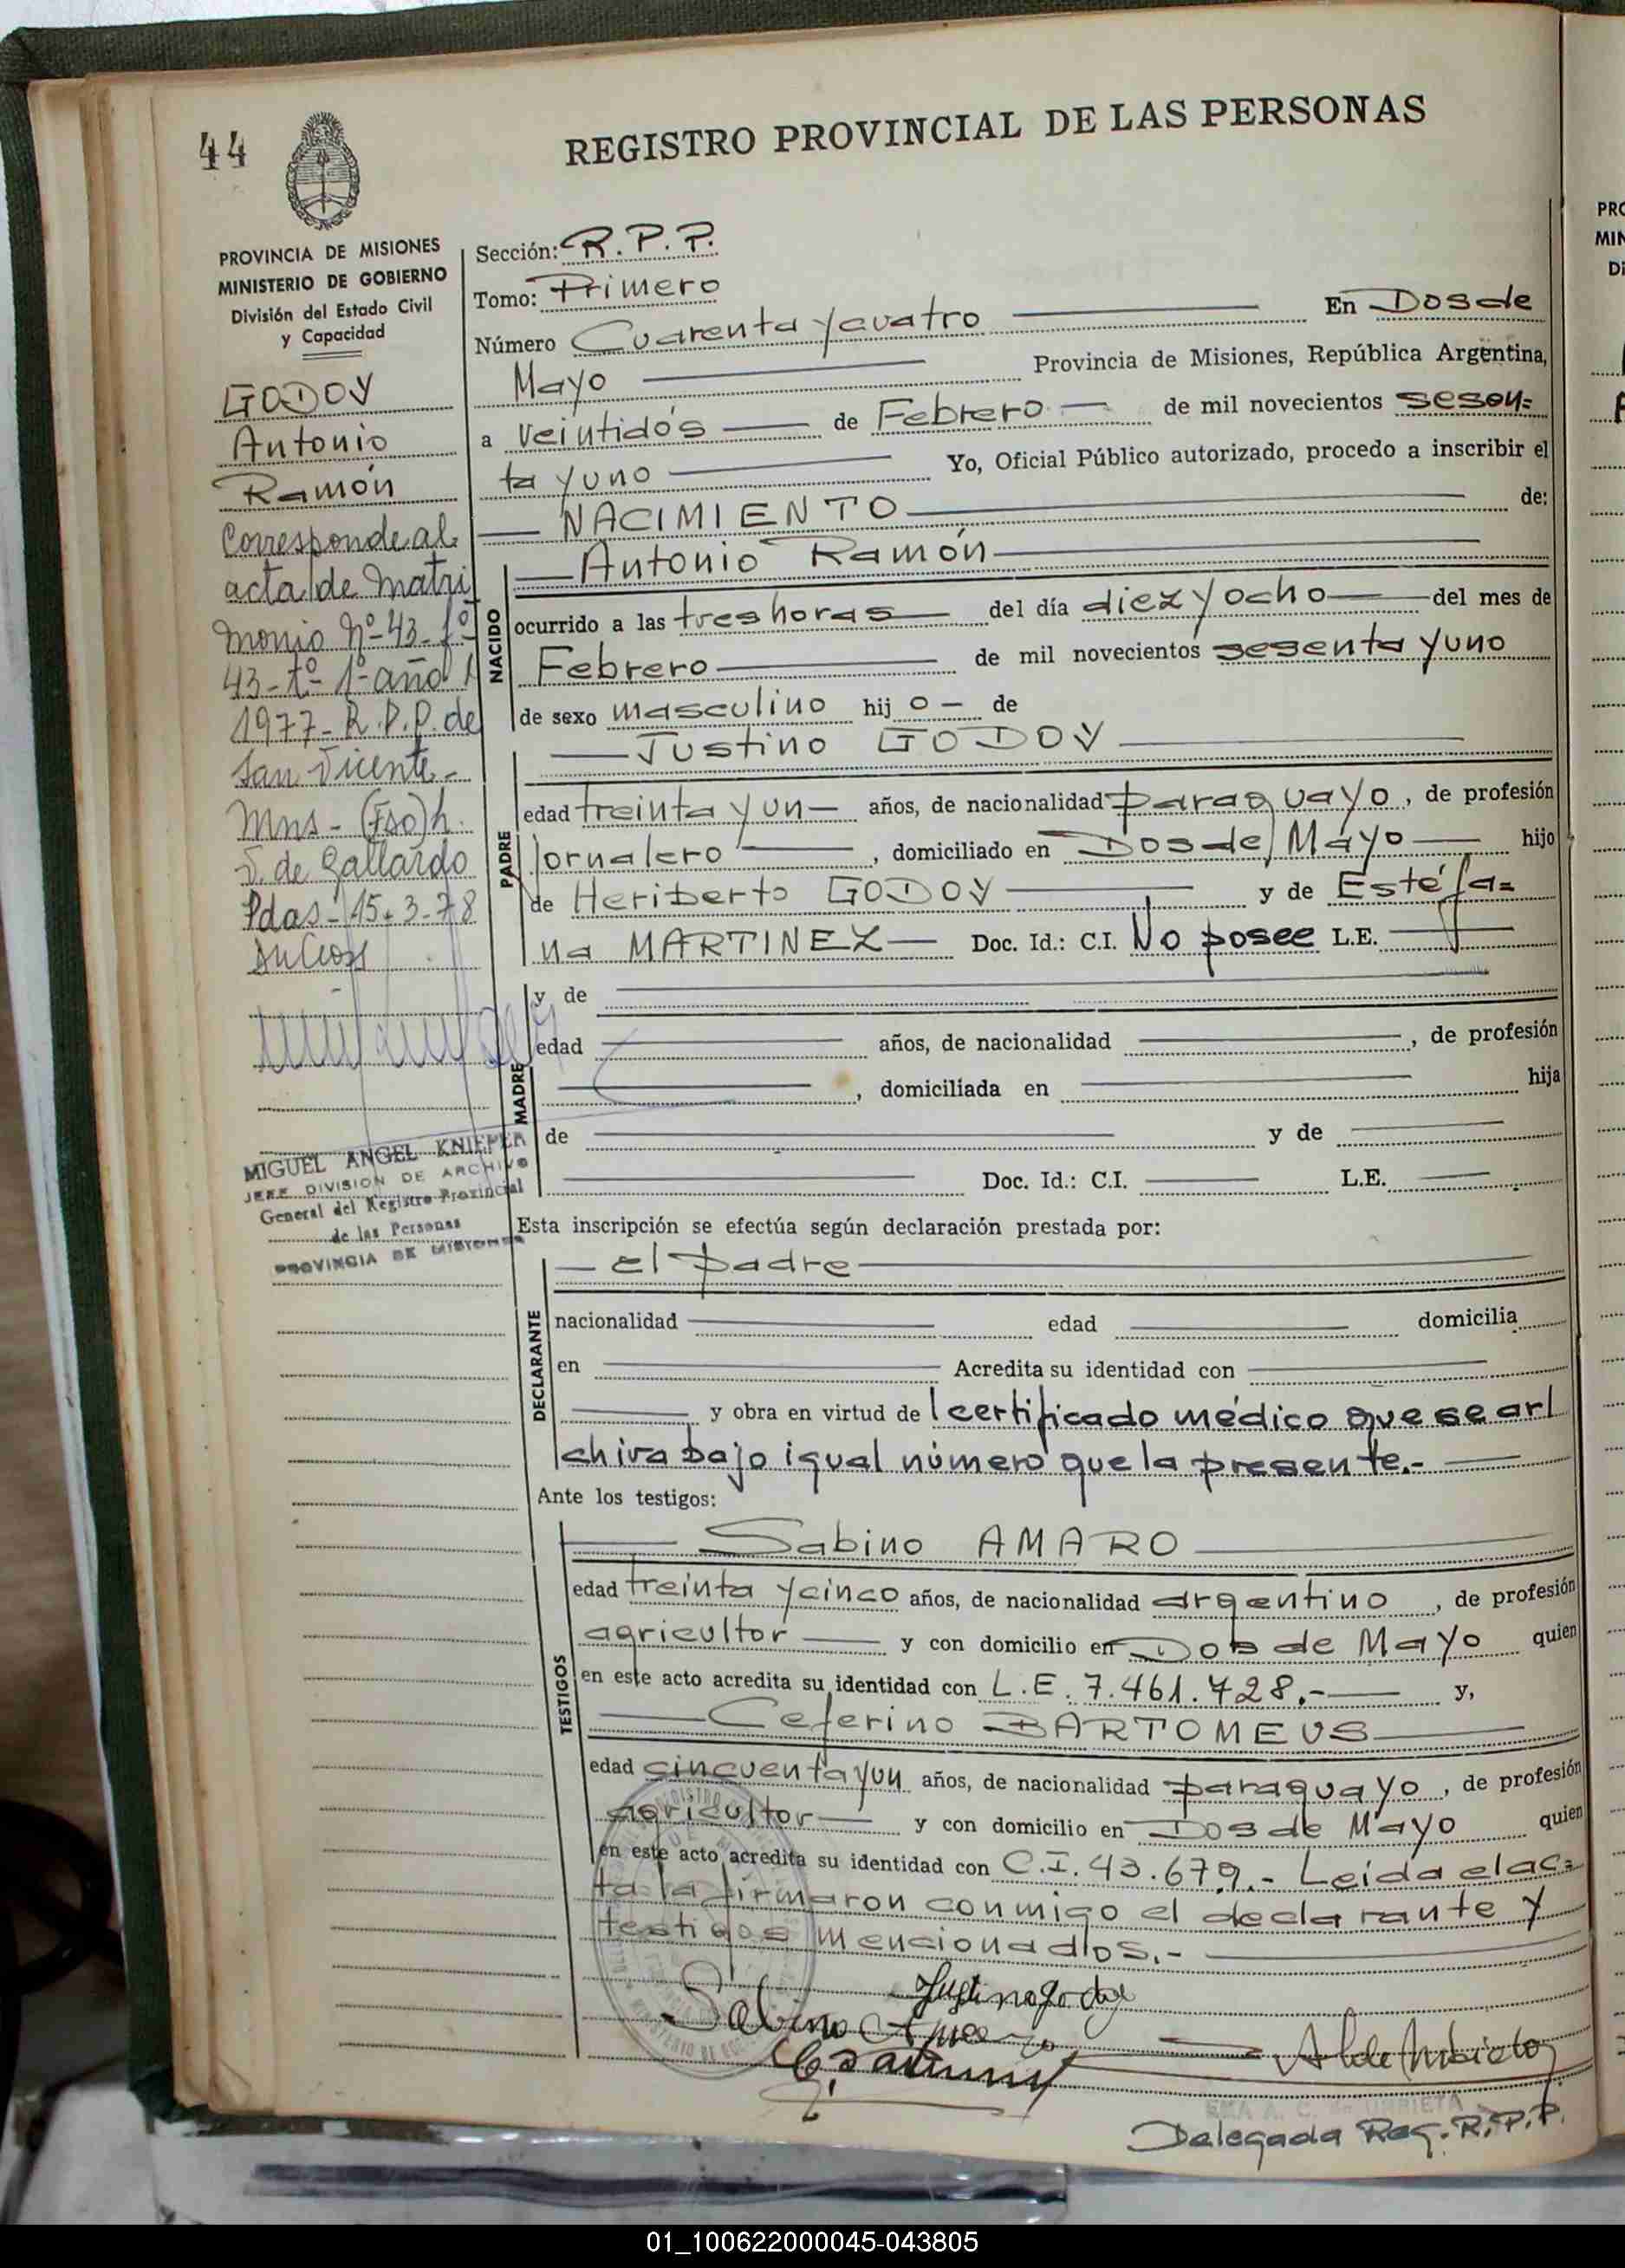 44
REGISTRO PROVINCIAL DE LAS PERSONAS
PROVINCIA DE MISIONES
MINISTERIO DE GOBIERNO
División del Estado Civil
y Capacidad
GODOY
Antonio
Ramón
Corresponde al
acta de Matri
monio Nº-43-fº-
43-tº-1º-año
1977-R.P.P. de
San Vicente-
Mns-(Fdo) h.
de Gallardo
Pdas-15-3-78
MIGUEL ANGEL KNIEPER
JEFE DIVISION DE ARCHIVO
General del Registro Provincial
de las Personas
PROVINCIA DE MISIONES
Sección: R.P.P.
Tomo: Primero
Número Cuarenta y cuatro En Dos de
Mayo Provincia de Misiones, República Argentina,
a veintidós de Febrero de mil novecientos sesen=
ta y uno Yo, Oficial Público autorizado, procedo a inscribir el
NACIMIENTO de:
Antonio Ramón
NACIDO
ocurrido a las tres horas del día diez y ocho del mes de
Febrero de mil novecientos sesenta y uno
de sexo masculino hij o de
Justino GODOY
PADRE
edad treinta y un años, de nacionalidad paraguayo, de profesión
Jornalero, domiciliado en Dos de Mayo hijo
de Heriberto GODOY y de Estéfa=
na MARTINEZ Doc. Id.: C.I. No posee L.E.
MADRE
y de
edad años, de nacionalidad , de profesión
, domiciliada en hija
de y de
Doc. Id.: C.I. L.E.
Esta inscripción se efectúa según declaración prestada por:
el padre
DECLARANTE
nacionalidad edad domicilia
en Acredita su identidad con
y obra en virtud de l certificado médico que se ar
chiva bajo igual número que la presente.-
Ante los testigos:
Sabino AMARO
TESTIGOS
edad treinta y cinco años, de nacionalidad argentino, de profesión
agricultor y con domicilio en Dos de Mayo quien
en este acto acredita su identidad con L.E. 7.461.428.- y,
Ceferino BARTOMEUS
edad cincuenta y un años, de nacionalidad paraguayo, de profesión
agricultor y con domicilio en Dos de Mayo quien
en este acto acredita su identidad con C.I. 43.679.- Leída el ac=
ta la firmaron conmigo el declarante y
testigos mencionados.-
Justino Godoy
Sabino
Delegada Reg. R.P.P.
01_100622000045-043805